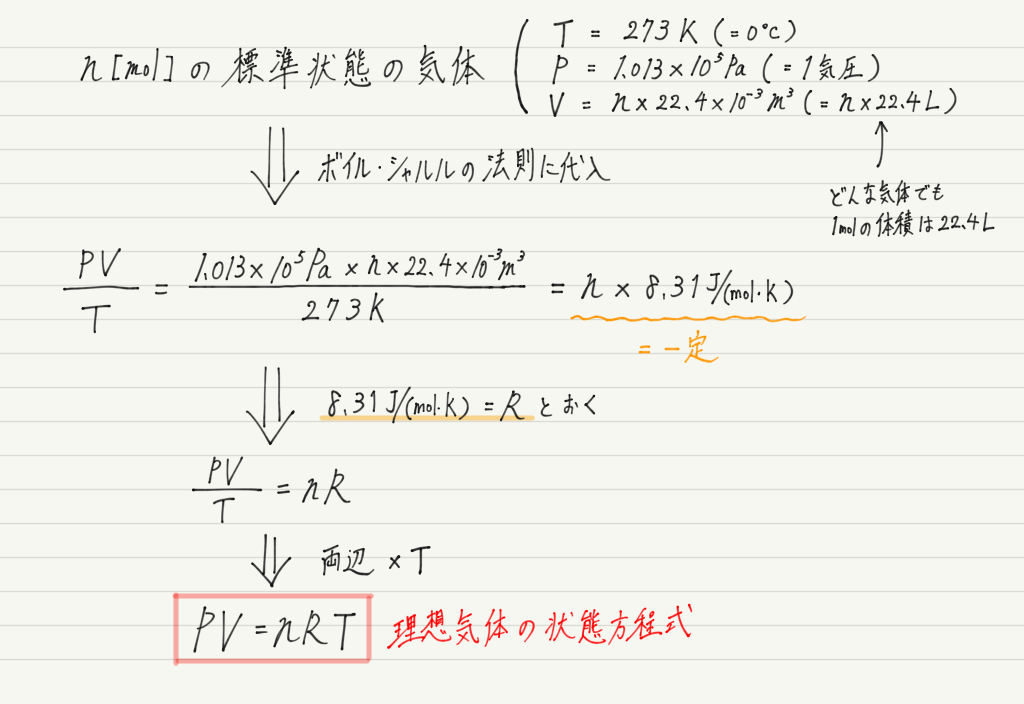 n[mol]の標準状態の気体
T = 273K (=0℃)
P = 1.013×10⁵Pa (=1気圧)
V = n×22.4×10⁻³m³ (=n×22.4L)
↑
どんな気体でも
1molの体積は22.4L
⇓ ボイル・シャルルの法則に代入
PV/T = 1.013×10⁵Pa × n×22.4×10⁻³m³/273K = n × 8.31J/(mol·K)
=一定
⇓ 8.31J/(mol·K) = R とおく
PV/T = nR
⇓ 両辺 ×T
PV = nRT 理想気体の状態方程式